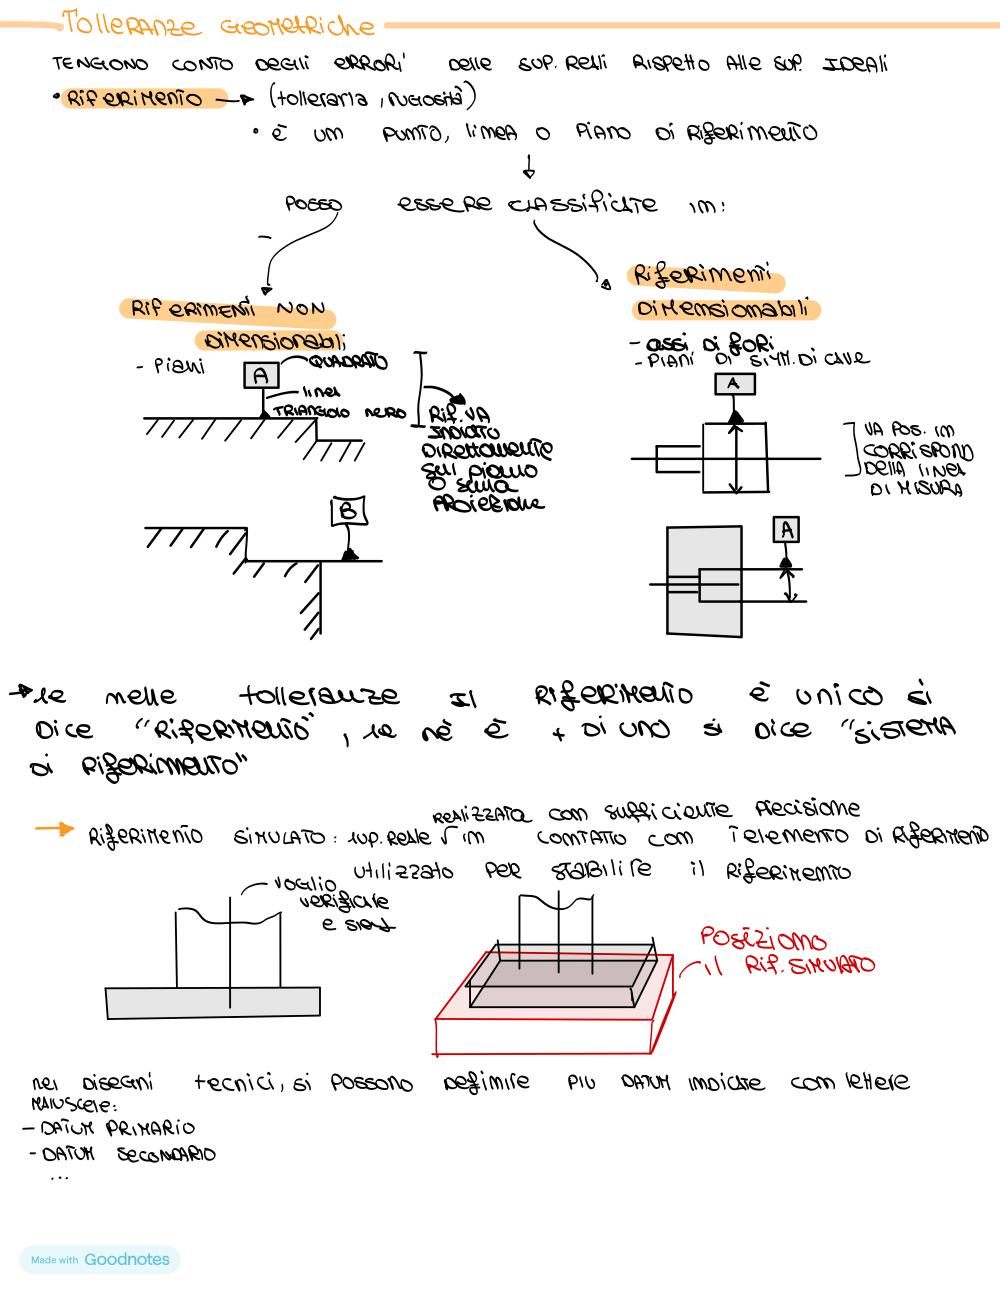 Tolleranze Geometriche
TENGONO CONTO DEGLI ERRORI DELLE SUP. REALI RISPETTO ALLE SUP. IDEALI
• RIFERIMENTO → (tollerata, rugosità)
• È UN PUNTO, LINEA O PIANO DI RIFERIMENTO
POSSO ESSERE CLASSIFICATE IN:
RIFERIMENTI NON
DIMENSIONABILI
- PIANI
A
QUADRATO
linea
TRIANGOLO NERO
Rif. VA
INDICATO
DIRETTAMENTE
SUL PIANO
O SULLA
PROIEZIONE
B
Riferimenti
DIMENSIONABILI
- assi di fori
- PIANI DI SIMM. DI CAVE
A
VA POS. IN
CORRISPOND
DELLA LINEA
DI MISURA
A
→ se nelle tolleranze il RIFERIMENTO è unico si
DICE "RIFERIMENTO", se nè è + DI UNO si DICE "SISTEMA
di RIFERIMENTO"
REALIZZATA con sufficiente precisione
→ RIFERIMENTO SIMULATO: sup. REALE √ in CONTATTO CON l'elemento DI RIFERIMENTO
utilizzato PER STABILIRE il RIFERIMENTO
VOGLIO
verificare
POSIZIONO
il RIF. SIMULATO
nei DISEGNI tecnici, si POSSONO DEFINIRE PIU DATUM INDICATE con lettere
MAIUSCOLE:
- DATUM PRIMARIO
- DATUM SECONDARIO
...
Made with Goodnotes